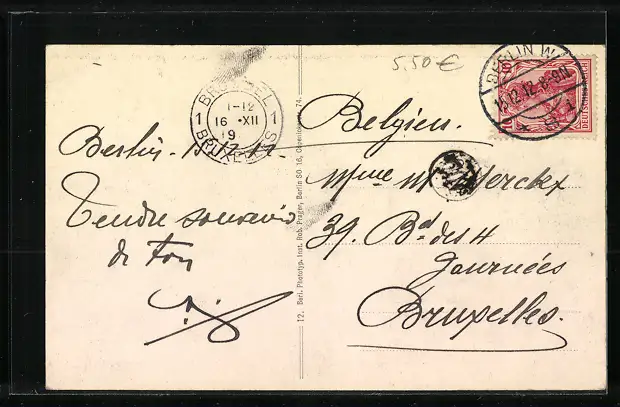 5,50 €
BERLIN W
15.12.12. 8-9N
DEUTSCHES REICH
10
BRUSSEL
1 1
1-12
16 XII
19
BRUXELLES
Berlin. 15.12.12.
Tendre souvenir
de ton
Belgien.
Mme M. Merckx
39. Bd des 4
Journées
Bruxelles.
12. Berl. Phototyp. Inst. Rob. Prager, Berlin SO 16, 74.